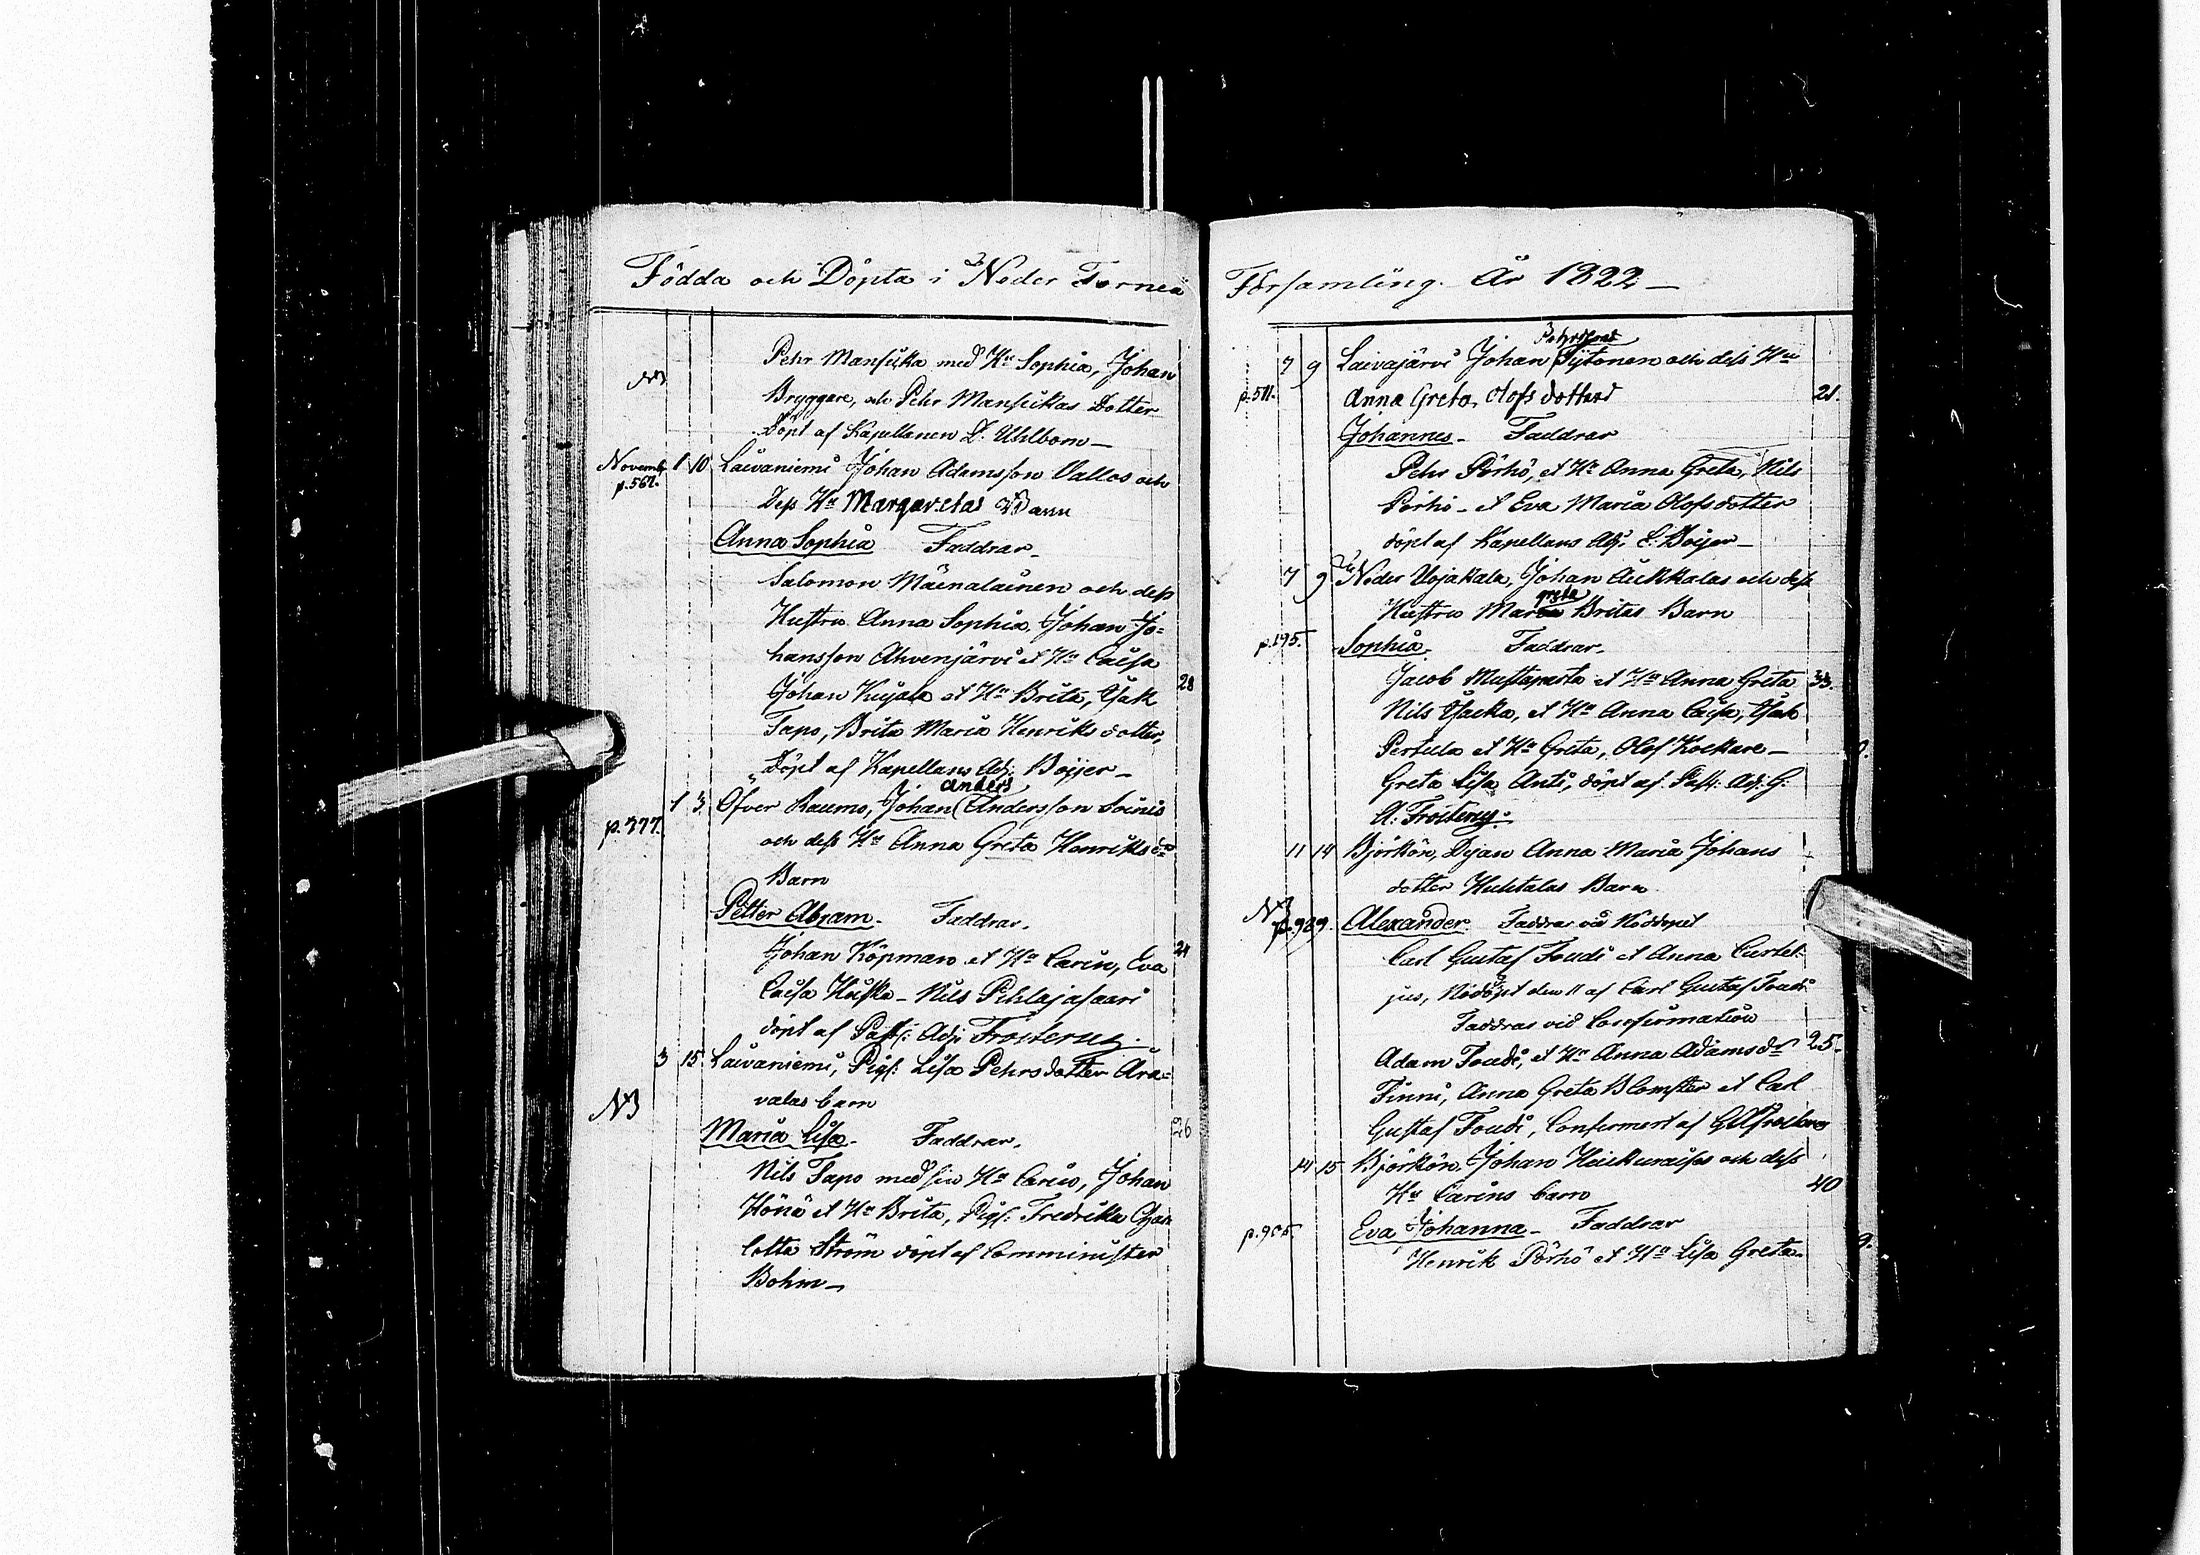 Födda och Döpta i Neder Torneå
Pehr Mansikka med Hu Sophia, Johan
NB
Bryggare, och Pehr Mansikkas Dotter
Döpt af Kapellanen D. Uhlbom—
Novemb. 1 10 Laivaniemi Johan Adamsson Vallos och
p.567. Dess Hu Margaretas Barn
Anna Sophia Faddrar—
Salomon Mäenalainen och dess
Hustru Anna Sophia, Johan Jo=
hansson Ahvenjärvi et Hu Caisa
Johan Kujala et Hu Brita, Isak 28
Tapo, Brita Maria Henriks dotter,
Döpt af Kapellans Adj. Boijer—
Anders
1 3 Öfver Raumo, Johan (Andersson Soinis
p.377. och dess Hu Anna Greta Henriks dr
Barn
Petter Abram— Faddrar.
Johan Köpman et Hu Carin, Eva 24
Caisa Huska— Nils Pehlajasaari
döpt af Past: Adj: Frosterus.
3 15 Laivaniemi, Pigs: Lisa Pehrsdotter Ara=
NB valas barn
Maria Lisa— Faddrar. 26
Nils Tapo med sin Hu Carin, Johan
Hönö et Hu Brita, Pigs: Fredrika Char
lotta Ström döpt af Comminister
Bohm—
Församling. År 1822—
7 9 Laivajärvi Johan Sijtonen och dess Hu
p.511. Anna Greta Olofs dotters 21.
Johannes— Faddrar
Pehr Pörhö, et Hu Anna Greta, Nils
Pörhö— et Eva Maria Olofsdotter
döpt af Kapellans Adj: Boijer—
7 9 Neder Vojakala, Johan Aukkalas och dess
greta
Hustru Maria Britas Barn
p.195. Sophia. Faddrar.
Jacob Mustaparta et Hu Anna Greta 33.
Nils Isacka, et Hu Anna Caisa, Isak
Pertula et Hu Greta, Olof Kockare—
Greta Lisa Anti, döpt af Past: Adj: G.
A. Frosterus.
11 14 Björkön, Dejan Anna Maria Johans
dotter Huhtalas Barn
NB p.929. Alexander. Faddrar vid Nöddopet
Carl Gustaf Toudi et Anna Curtel:
jus, Nöddöpt den 11 af Carl Gustaf Toudi
Faddrar vid Confirmation
Adam Toudi, et Hu Anna Adamsdr 25.
Finni, Anna Greta Blomster et Carl
Gustaf Toudi, Confirmert af G A Frosterus
14 15 Björkön. Johan och dess
Hu Carins barn 40
p.905. Eva Johanna— Faddrar
Henrik Pörhö et Hu Lisa Greta.